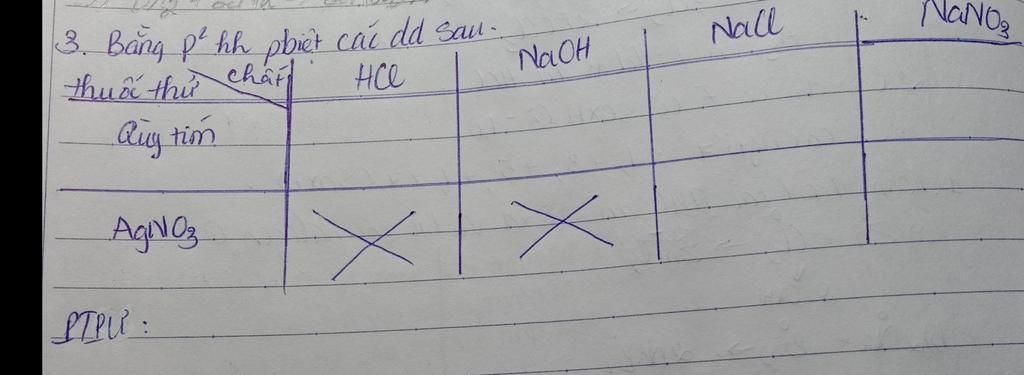 3. Bằng p² hh pbiệt các dd sau.
thuốc thử chất HCl NaOH NaCl NaNO₃
Qùy tím
AgNO₃
PTPƯ: